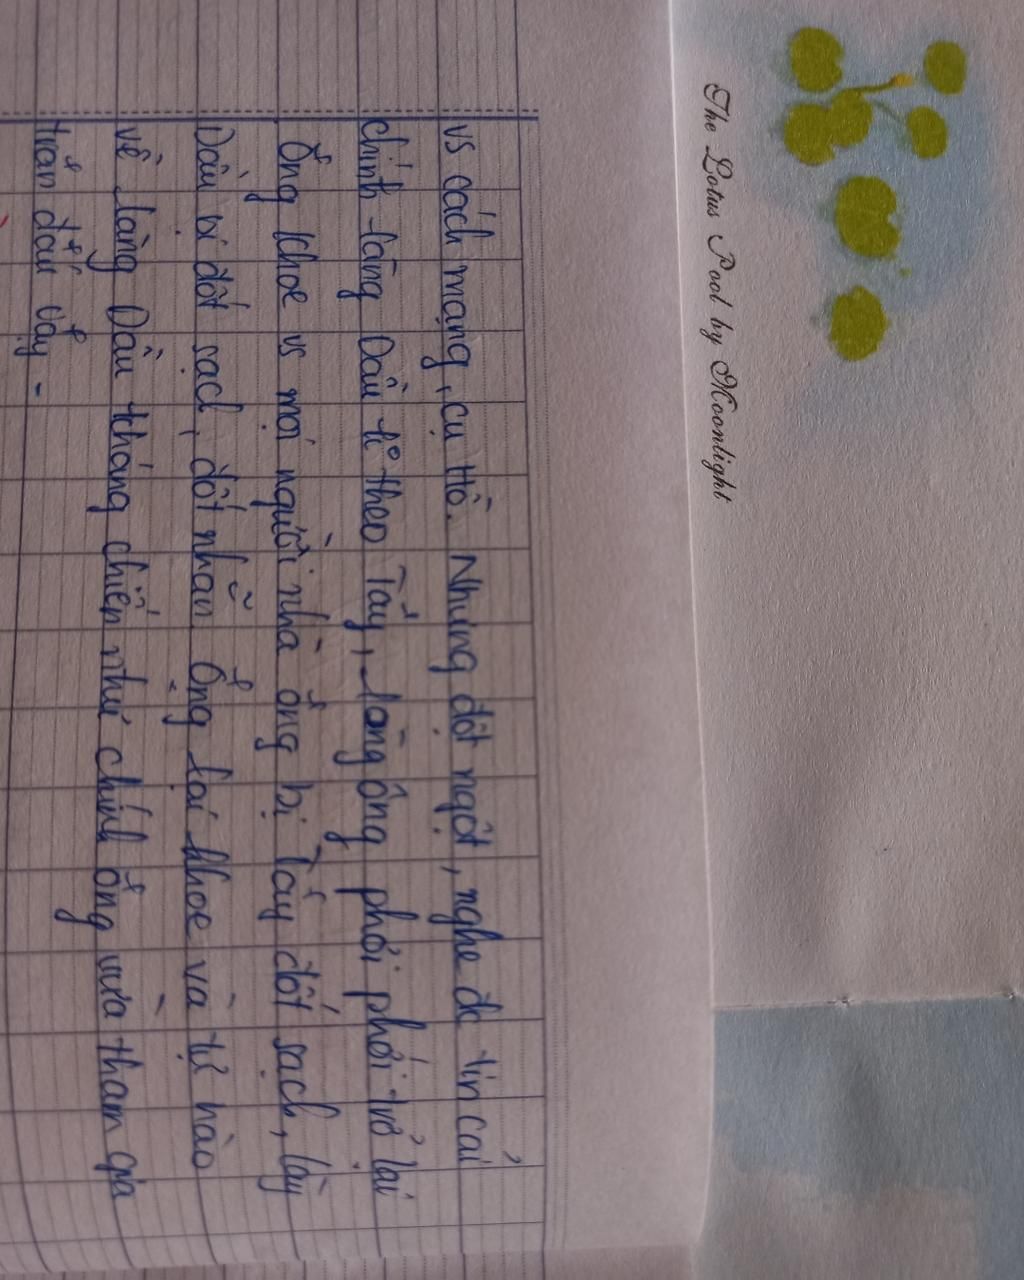 The Lotus Pool by Moonlight
vs cách mạng, cụ Hồ. Nhưng đột ngột, nghe đc tin cải
chính làng Dầu k theo Tây, làng ông phơi phới trở lại
Ông khoe vs mọi người nhà ông bị Tây đốt sạch, làng
Dầu bị đốt sạch, đốt nhẵn. Ông lại khoe và tự hào
về làng Dầu kháng chiến như chính ông vừa tham gia
trận đấu vậy.